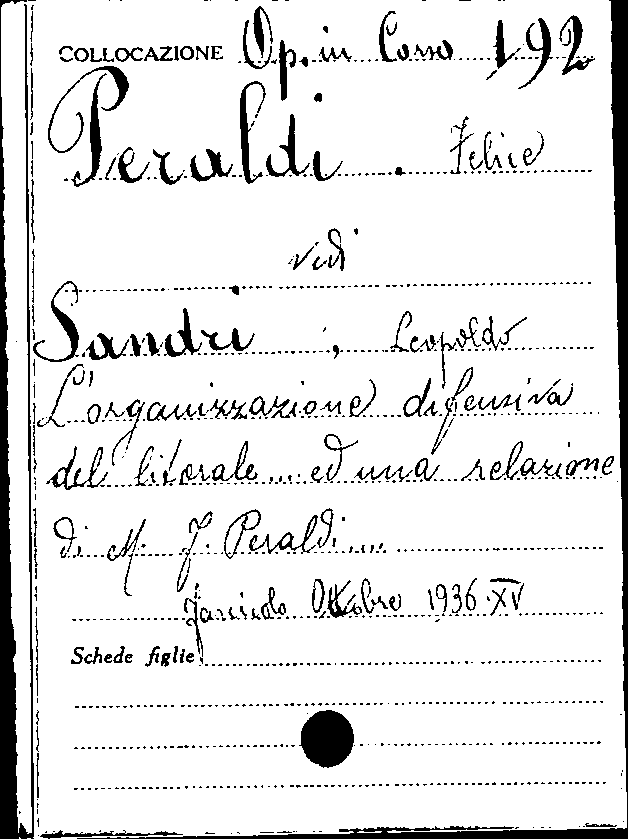 COLLOCAZIONE Op. in Corso 192
Peraldi . Felice
vedi
Sandri , Leopoldo
L'organizzazione difensiva
del litorale .... ed una relazione
di M. F. Peraldi ....
Fascicolo Ottobre 1936 · XV
Schede figlie